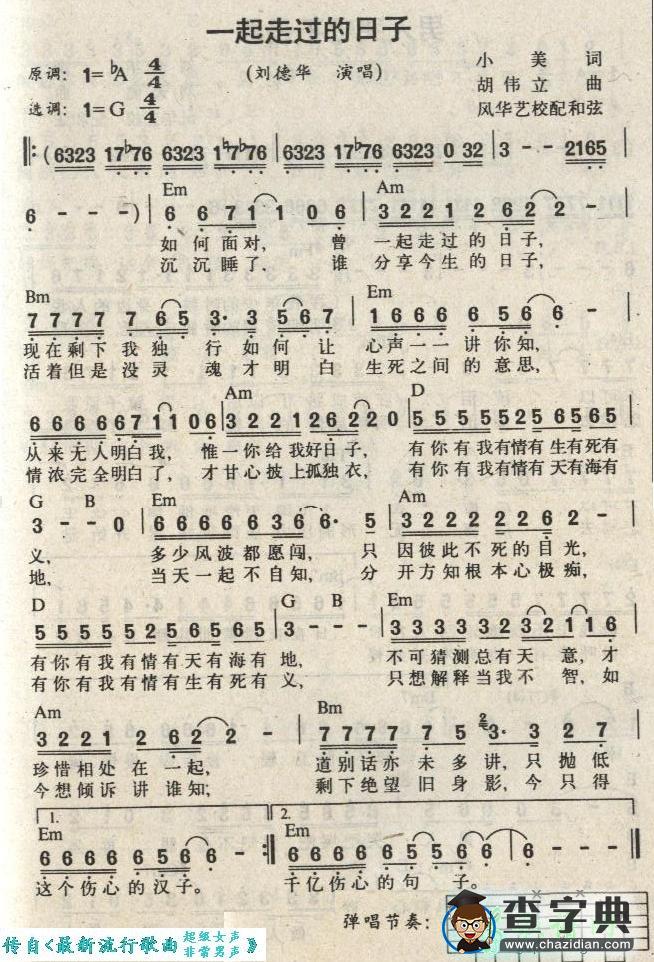 一起走过的日子
原调：1=♭A 4/4
(刘德华 演唱)
小美 词
胡伟立 曲
选调：1=G 4/4
风华艺校配和弦
‖: (6323 17♭76 6323 1♮7♭76 | 6323 17♭76 6323 0 32 | 3 - - 2165 |
Em Am
6 - - -) | 6 6 7 1 1 0 6 | 3 2 2 1 2 6 2 2 - |
如何面对， 曾 一起走过的日子，
沉沉睡了， 谁 分享今生的日子，
Bm Em
7 7 7 7 7 6 5 3· 3 5 6 7 | 1 6 6 6 6 5 6 6 - |
现在剩下我独 行如何让 心声一一讲你知，
活着但是没灵 魂才明白 生死之间的意思，
Am D
6 6 6 6 6 7 1 1 0 6 | 3 2 2 1 2 6 2 2 0 | 5 5 5 5 5 5 2 5 6 5 6 5
从来无人明白我， 惟一你给我好日子， 有你有我有情有生有死有
情浓完全明白了， 才甘心披上孤独衣， 有你有我有情有天有海有
G B Em Am
3 - - 0 | 6 6 6 6 6 3 6 6· 5 | 3 2 2 2 2 2 6 2 - |
义， 多少风波都愿闯， 只 因彼此不死的目光，
地， 当天一起不自知， 分 开方知根本心极痴，
D G B Em
5 5 5 5 5 2 5 6 5 6 5 | 3 - - - | 3 3 3 3 3 2 3 2 1 1 6 |
有你有我有情有天有海有 地， 不可猜测总有天 意，才
有你有我有情有生有死有 义， 只想解释当我不 智，如
Am Bm
3 2 2 1 2 6 2 2 - | 7 7 7 7 7 5 3· 3 2 7 |
珍惜相处在一起， 道别话亦未多讲，只抛低
今想倾诉讲谁知； 剩下绝望旧身影，今只得
1. 2.
Em Em
6 6 6 6 6 5 6 6 - :‖ 6 6 6 6 6 5 5 6 6 | 6 - - - ‖
这个伤心的汉子。 千亿伤心的句 子。
弹唱节奏：
传自《最新流行歌曲 超级女声 非常男声》
查字典
www.chazidian.com